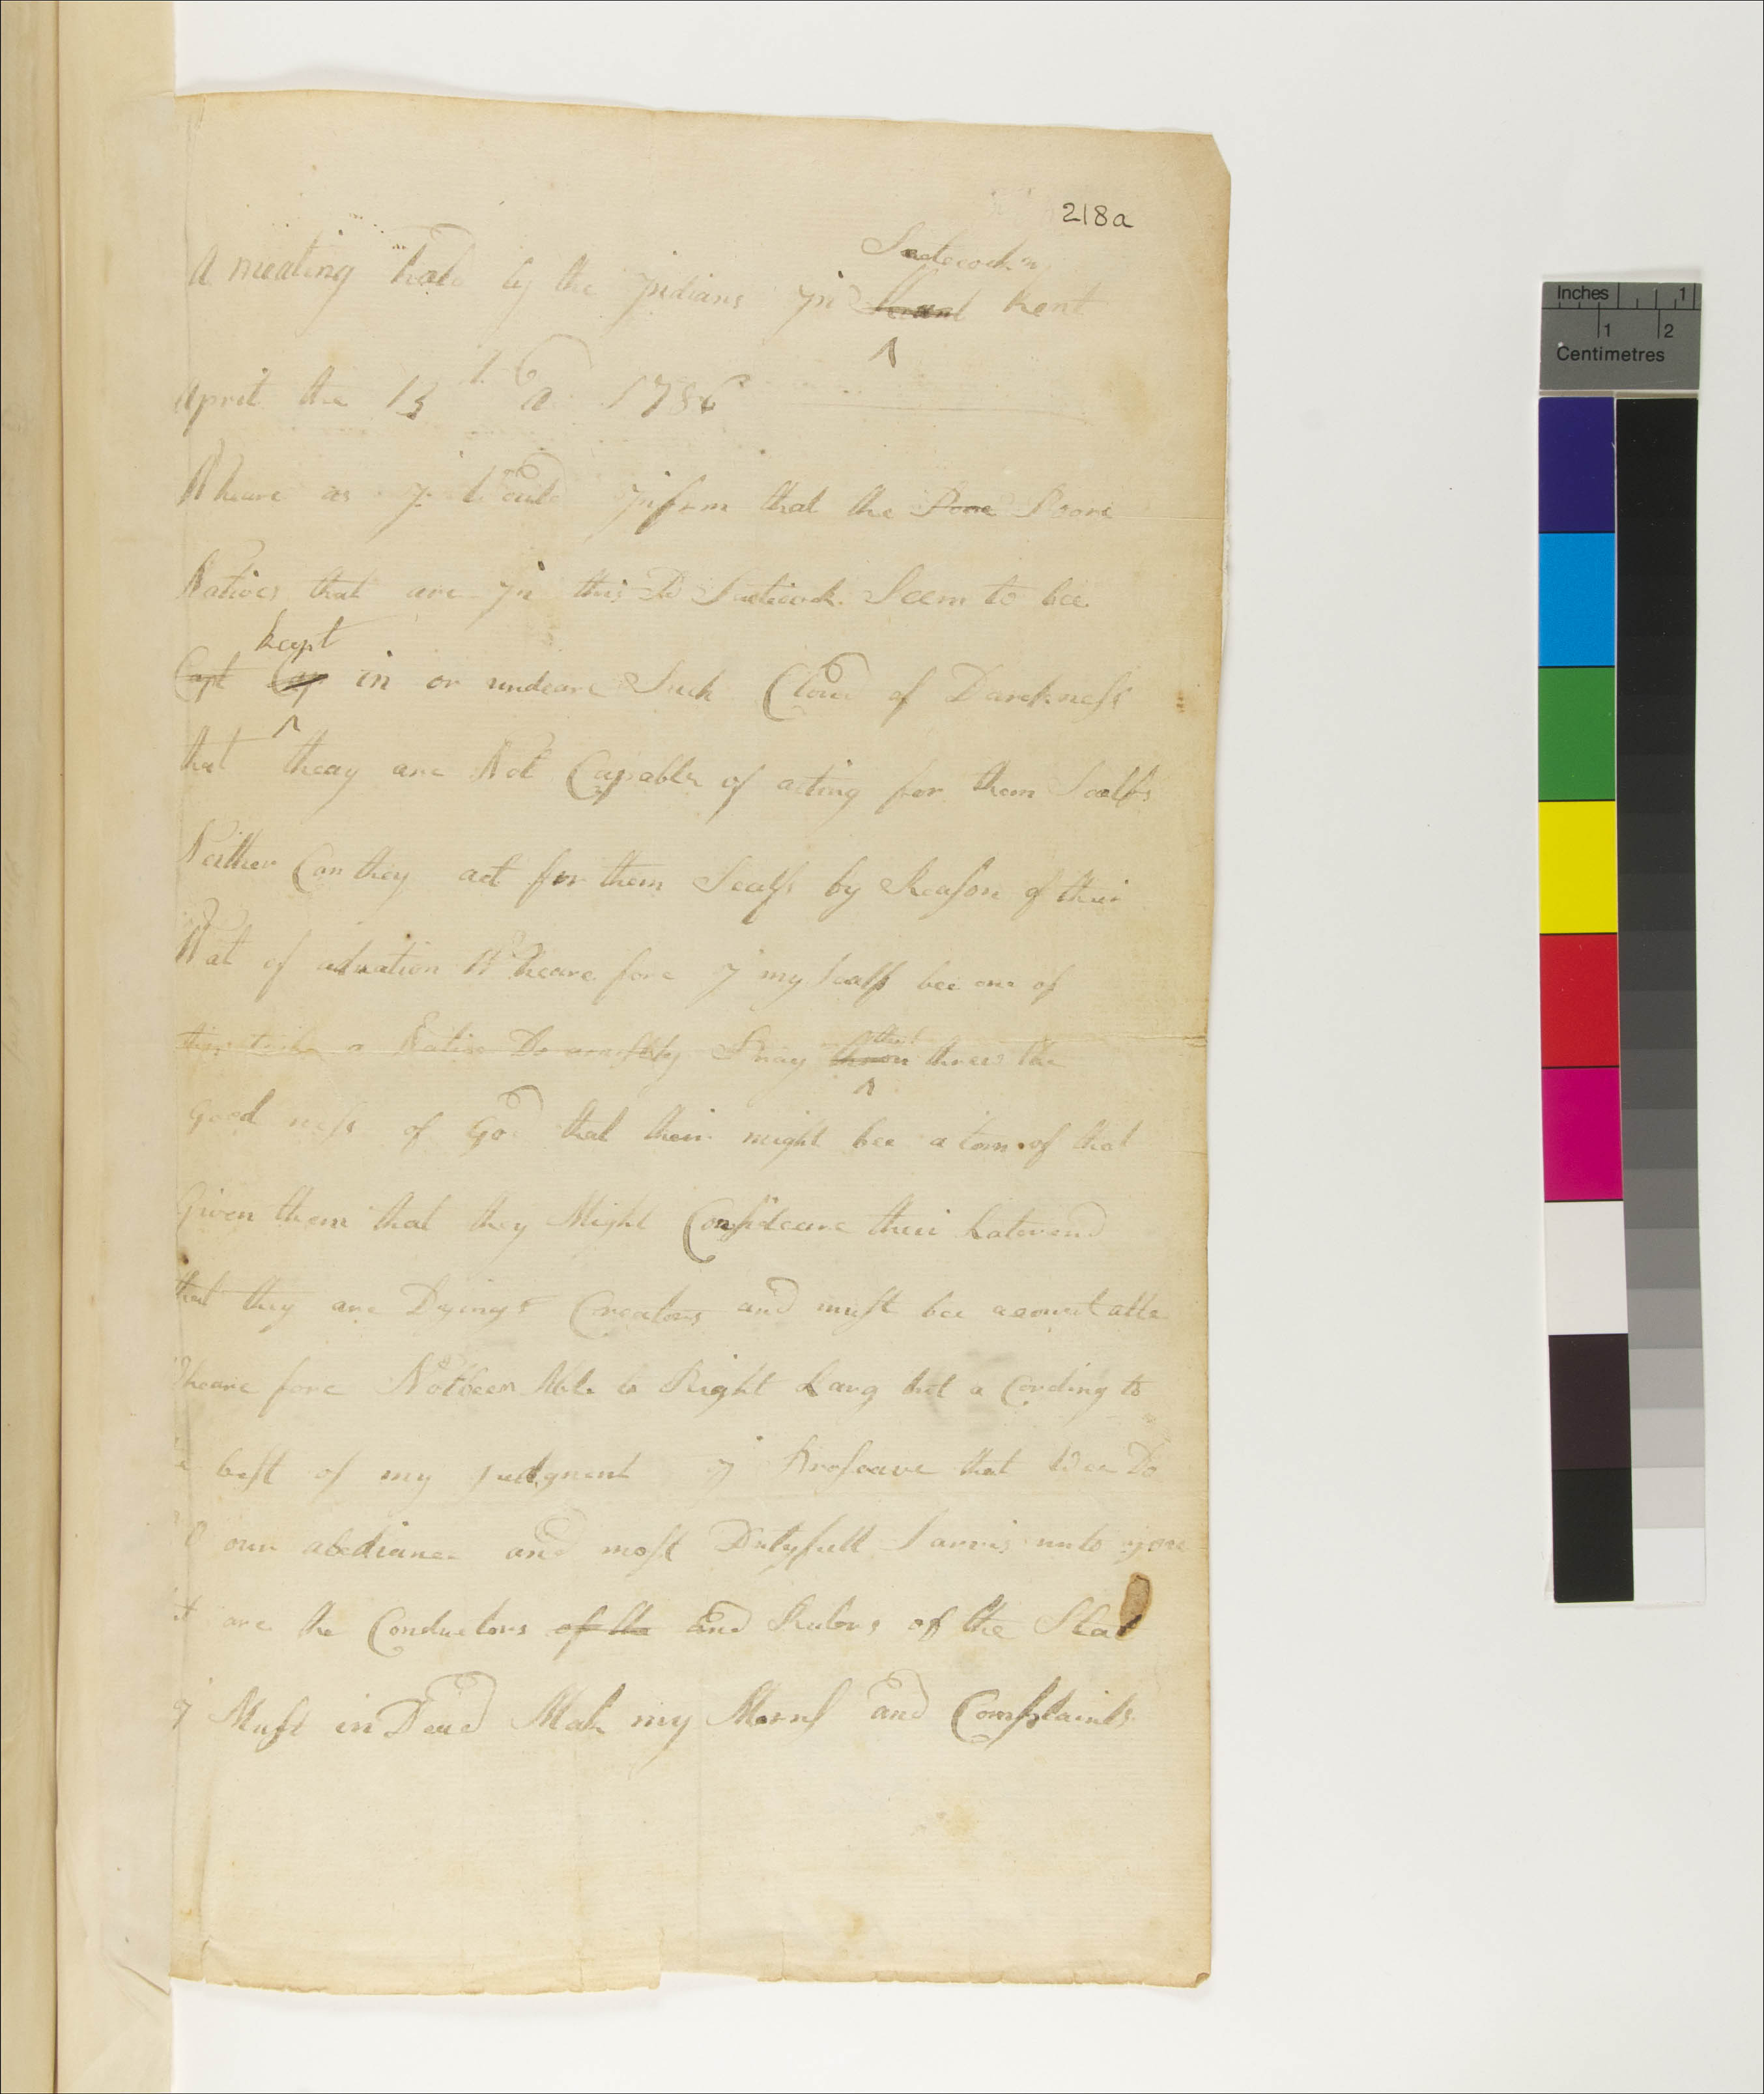 218a
Seutecook in
A meating hald by the Indians yn Kent
April the 13 th D 1786
Wheare as I Would Inform that the Pore Poore
Natives that are yn this Seuticook Seem to bee
kept
Capt Cap in or undeare Such Cloud of Darckness
that theay are Not Capable of acting for them Sealfs
Neither Can they act for them Sealfs by Reason of their
Wat of aduation Wheare fore I my sealf bee one of
a Native Do arnestly Pray threw the
Good ness of God that their might bee a torn of that
Given them that they Might Consideare their Laterend
that they are Dyings Creators and must bee acountable
Wheare fore Not been Able to Right Larg but a Cording to
best of my Judgment I Proseave that Wee Do
our abediance and most Dutyfull Sarvis unto youe
are the Conductors of the and Rulors of the Stat
I Must in Deed Mak my Morns and Complaints